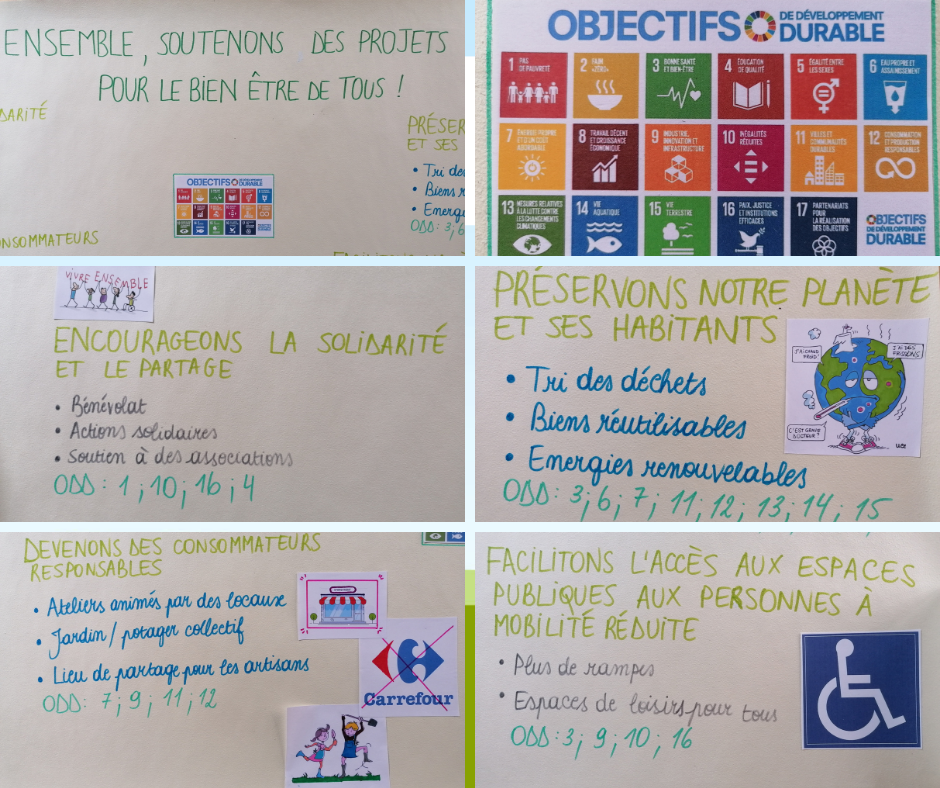 ENSEMBLE, SOUTENONS DES PROJETS
POUR LE BIEN ÊTRE DE TOUS !
DARITÉ
PRÉSER
ET SES
• Tri de
• Biens r
• Energi
ODD: 3;6
ONSOMMATEURS
OBJECTIFS DURABLE
OBJECTIFS DE DÉVELOPPEMENT
DURABLE
1 PAS DE PAUVRETÉ
2 FAIM «ZÉRO»
3 BONNE SANTÉ ET BIEN-ÊTRE
4 ÉDUCATION DE QUALITÉ
5 ÉGALITÉ ENTRE LES SEXES
6 EAU PROPRE ET ASSAINISSEMENT
7 ÉNERGIE PROPRE ET D'UN COÛT ABORDABLE
8 TRAVAIL DÉCENT ET CROISSANCE ÉCONOMIQUE
9 INDUSTRIE, INNOVATION ET INFRASTRUCTURE
10 INÉGALITÉS RÉDUITES
11 VILLES ET COMMUNAUTÉS DURABLES
12 CONSOMMATION ET PRODUCTION RESPONSABLES
13 MESURES RELATIVES À LA LUTTE CONTRE LES CHANGEMENTS CLIMATIQUES
14 VIE AQUATIQUE
15 VIE TERRESTRE
16 PAIX, JUSTICE ET INSTITUTIONS EFFICACES
17 PARTENARIATS POUR LA RÉALISATION DES OBJECTIFS
OBJECTIFS
DE DÉVELOPPEMENT
DURABLE
VIVRE ENSEMBLE
ENCOURAGEONS LA SOLIDARITÉ
ET LE PARTAGE
• Bénévolat
• Actions solidaires
• Soutien à des associations
ODD : 1 ; 10 ; 16 ; 4
PRÉSERVONS NOTRE PLANÈTE
ET SES HABITANTS
• Tri des déchets
• Biens réutilisables
• Energies renouvelables
ODD : 3 ; 6 ; 7 ; 11 ; 12 ; 13 ; 14 ; 15
J'AI CHAUD
J'AI DES
FRISSONS
C'EST GRAVE
DOCTEUR ?
DEVENONS DES CONSOMMATEURS
RESPONSABLES
• Ateliers animés par des locaux
• Jardin / potager collectif
• Lieu de partage pour les artisans
ODD : 7 ; 9 ; 11 ; 12
Carrefour
FACILITONS L'ACCÈS AUX ESPACES
PUBLIQUES AUX PERSONNES À
MOBILITÉ RÉDUITE
• Plus de rampes
• Espaces de loisirs pour tous
ODD : 3 ; 9 ; 10 ; 16